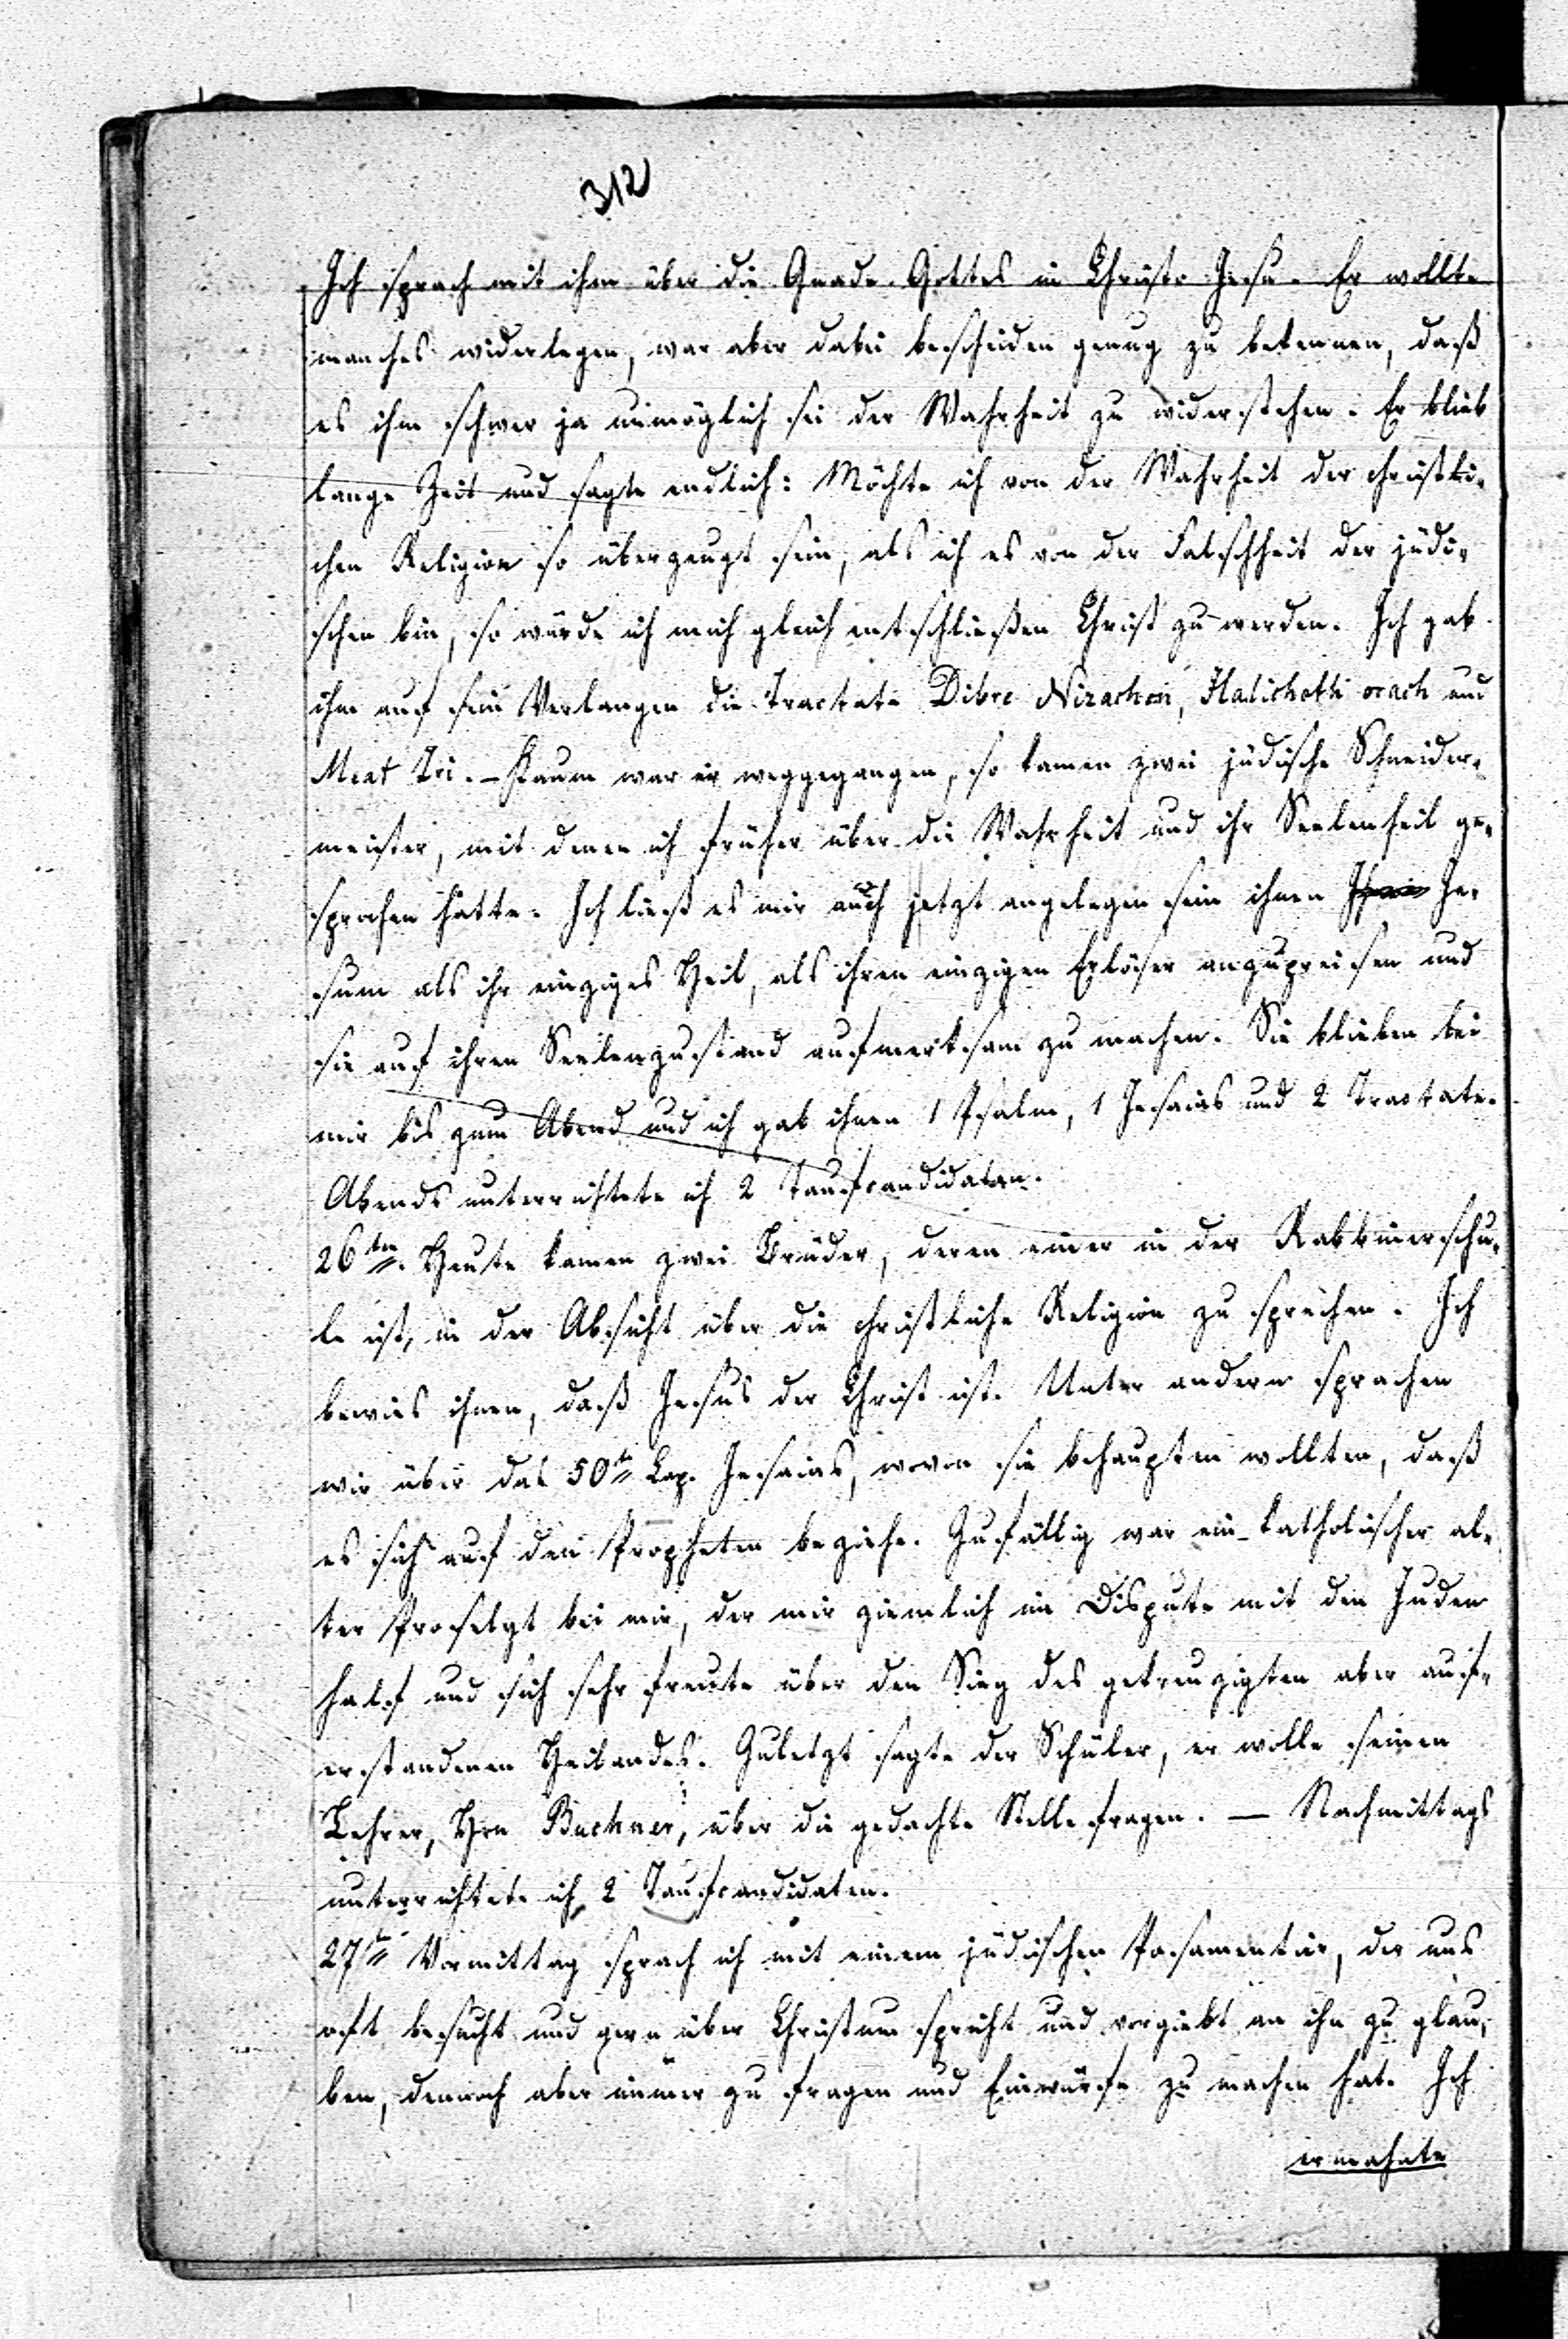 312
Ich sprach mit ihm über die Gnade Gottes in Christo Jesu. Er wollte
manches widerlegen, war aber dabei bescheiden genug zu bekennen, daß
es ihm schwer ja unmöglich sei der Wahrheit zu widerstehen. Er blieb
lange Zeit und sagte endlich: Möchte ich von der Wahrheit der christli-
chen Religion so überzeugt sein, als ich es von der Falschheit der jüdi-
schen bin, so würde ich mich gleich entschließen Christ zu werden. Ich gab
ihm auf sein Verlangen die Tractate Dibre Nizachon, Halichoth orach und
Meat Zri. – Kaum war er weggegangen, so kamen zwei jüdische Schneider-
meister, mit denen ich früher über die Wahrheit und ihr Seelenheil ge-
sprochen hatte. Ich ließ es mir auch jetzt angelegen sein ihnen Je-
sum als ihr einziges Heil, als ihren einzigen Erlöser anzupreisen und
sie auf ihren Seelenzustand aufmerksam zu machen. Sie blieben bei
mir bis zum Abend und ich gab ihnen 1 Psalm, 1 Jesaias und 2 Tractate.
Abends unterrichtete ich 2 Taufcandidaten.
26ten. Heute kamen zwei Brüder, deren einer in der Rabbinerschu-
le ist, in der Absicht über die christliche Religion zu sprechen. Ich
bewies ihnen, daß Jesus der Christ ist. Unter andern sprachen
wir über das 50te Cap. Jesaias, wovon sie behaupten wollten, daß
es sich auf den Propheten beziehe. Zufällig war ein katholischer al-
ter Proselyt bei mir, der mir ziemlich im Dispute mit den Juden
half und sich sehr freute über den Sieg des gekreuzigten aber auf-
erstandenen Heilandes. Zuletzt sagte der Schüler, er wolle seinen
Lehrer, Hrn Buchner, über die gedachte Stelle fragen. — Nachmittags
unterrichtete ich 2 Taufcandidaten.
27te Vormittag sprach ich mit einem jüdischen Posamentier, der uns
oft besucht und gern über Christum spricht und vorgiebt an ihn zu glau-
ben, dennoch aber immer zu fragen und Einwürfe zu machen hat. Ich
ermahnte